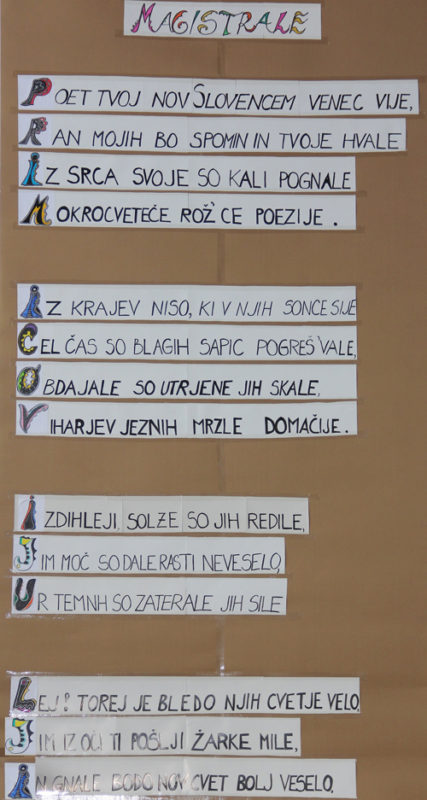 MAGISTRALE
POET TVOJ NOV SLOVENCEM VENEC VIJE,
RAN MOJIH BO SPOMIN IN TVOJE HVALE
IZ SRCA SVOJE SO KALI POGNALE
MOKROCVETEČE ROŽ'CE POEZIJE.
IZ KRAJEV NISO, KI V NJIH SONCE SIJE
CEL ČAS SO BLAGIH SAPIC POGREŠ'VALE,
OBDAJALE SO UTRJENE JIH SKALE,
VIHARJEV JEZNIH MRZLE DOMAČIJE.
IZDIHLEJI, SOLZE SO JIH REDILE,
JIM MOČ SO DALE RASTI NEVESELO,
UR TEMNH SO ZATERALE JIH SILE
LEJ! TOREJ JE BLEDO NJIH CVETJE VELO,
JIM IZ OČI TI POŠLJI ŽARKE MILE,
IN GNALE BODO NOV CVET BOLJ VESELO.